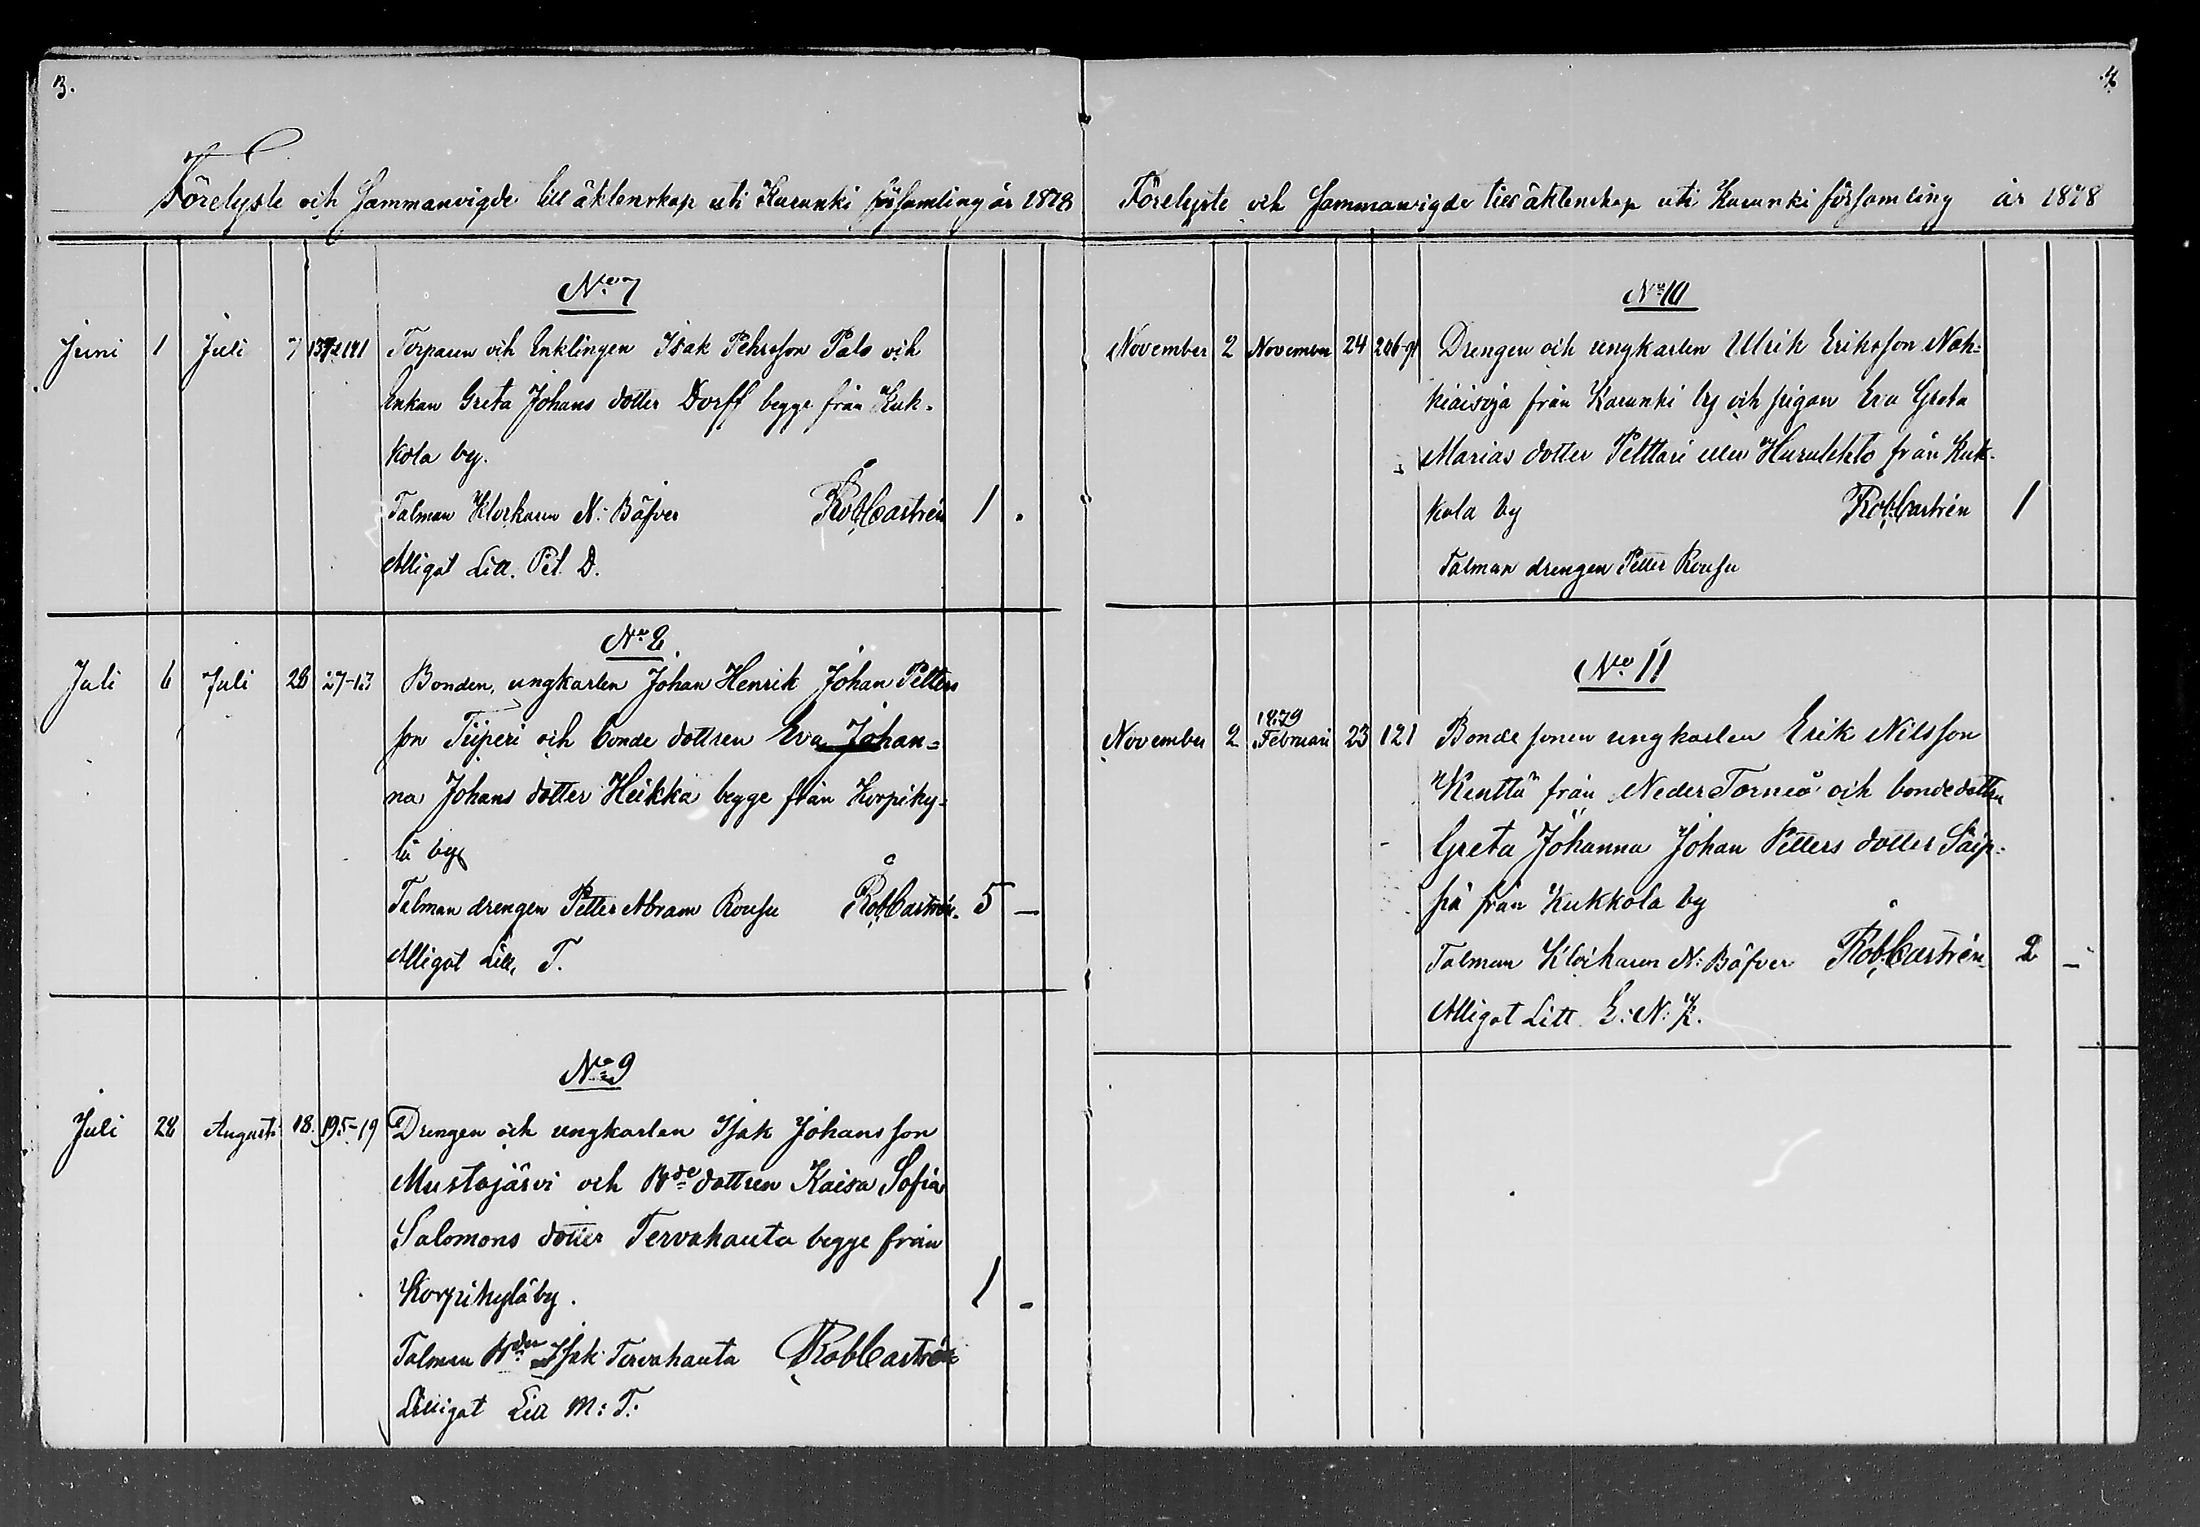 3.
Förelyste och Sammanvigde till äktenskap uti Karunki församling år 1878
No 7
Juni 1 Juli 7 Torparen och Enklingen Isak Pehrsson Palo och
Enkan Greta Johans dotter Dorff begge från Kuk-
kola by.
Talman Klockaren N: Bäfver Rob Castrén 1 .
Alligat Litt. P. D.
No 8.
Juli 6 Juli 28 27-13 Bonden, ungkarlen Johan Henrik Johan Petters
son Tiiperi och bonde dottren Eva Johan-
na Johans dotter Heikka begge från Korpiky-
lä by
Talman drengen Petter Abram Rousu Rob Castrén. 5 –
Alligat Litt. T.
No 9
Juli 28 Augusti 18. 195-19 Drengen och ungkarlen Isak Johansson
Mustajärvi och Bde dottren Kaisa Sofia
Salomons dotter Tervahauta begge från
Korpikylä by. 1 -
Talman Bden Isak Tervahauta Rob Castrén
Alligat Litt M: T:
4.
Förelyste och Sammanvigde till äktenskap uti Karunki församling år 1878
No 10
November 2 November 24 Drengen och ungkarlen Ulrik Eriksson Nah-
kiaisoja från Karunki by och pigan Eva Greta
Marias dotter Pelttari eller från Kuk-
kola by Rob Castrén 1
Talman drengen Petter Rousu
No 11
November 2 1879 Februari 23 121 Bonde sonen ungkarlen Erik Nilsson
Kenttä från Neder Torneå och bonde dottren
Greta Johanna Johan Petters dotter Säip-
pä från Kukkola by
Talman Klockaren N: Bäfver Rob Castrén 2 –
Alligat Litt E: N: K.